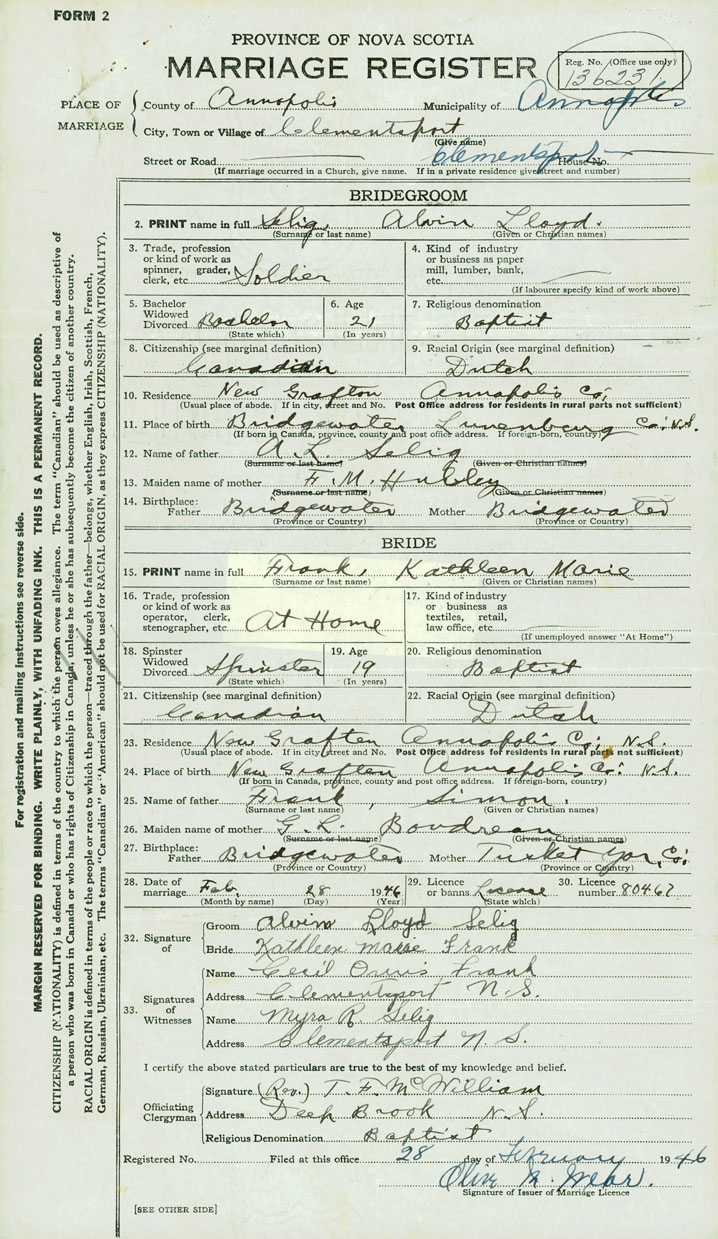 FORM 2
PROVINCE OF NOVA SCOTIA
MARRIAGE REGISTER
Reg. No. (Office use only)
13623
PLACE OF MARRIAGE
County of Annapolis Municipality of Annapolis
City, Town or Village of Clementsport
(Give name)
Street or Road Clementsport House No.
(If marriage occurred in a Church, give name. If in a private residence give street and number)
BRIDEGROOM
2. PRINT name in full Selig, Alvin Lloyd.
(Surname or last name) (Given or Christian names)
3. Trade, profession or kind of work as spinner, grader, clerk, etc. Soldier
4. Kind of industry or business as paper mill, lumber, bank, etc.
(If labourer specify kind of work above)
5. Bachelor Widowed Divorced Bachelor
(State which)
6. Age 21
(In years)
7. Religious denomination
Baptist
8. Citizenship (see marginal definition)
Canadian
9. Racial Origin (see marginal definition)
Dutch
10. Residence New Grafton Annapolis Co;
(Usual place of abode. If in city, street and No. Post Office address for residents in rural parts not sufficient)
11. Place of birth Bridgewater Lunenburg Co: N.S.
(If born in Canada, province, county and post office address. If foreign-born, country)
12. Name of father A. L. Selig
(Surname or last name) (Given or Christian names)
13. Maiden name of mother F. M. Hubley
(Surname or last name) (Given or Christian names)
14. Birthplace: Father Bridgewater Mother Bridgewater
(Province or Country) (Province or Country)
BRIDE
15. PRINT name in full Frank, Kathleen Marie
(Surname or last name) (Given or Christian names)
16. Trade, profession or kind of work as operator, clerk, stenographer, etc. At Home
17. Kind of industry or business as textiles, retail, law office, etc.
(If unemployed answer "At Home")
18. Spinster Widowed Divorced Spinster
(State which)
19. Age 19
(In years)
20. Religious denomination
Baptist
21. Citizenship (see marginal definition)
Canadian
22. Racial Origin (see marginal definition)
Dutch
23. Residence New Graften Annapolis Co; N.S.
(Usual place of abode. If in city street and No. Post Office address for residents in rural parts not sufficient)
24. Place of birth New Graften Annapolis Co: N.S.
(If born in Canada, province, county and post office address. If foreign-born, country)
25. Name of father Frank, Simon.
(Surname or last name) (Given or Christian names)
26. Maiden name of mother G. L. Boudreau
(Surname or last name) (Given or Christian names)
27. Birthplace: Father Bridgewater Mother Tusket Yar, Co:
(Province or Country) (Province or Country)
28. Date of marriage Feb, 28 1946
(Month by name) (Day) (Year)
29. Licence or banns License
(State which)
30. Licence number 80467
32. Signature of
Groom Alvin Lloyd Selig
Bride Kathleen Marie Frank
33. Signatures of Witnesses
Name Cecil Frank
Address Clementsport N.S.
Name Myra R. Selig
Address Clementsport N.S.
I certify the above stated particulars are true to the best of my knowledge and belief.
Officiating Clergyman
Signature (Rev.) T. F. McWilliam
Address Deep Brook N.S.
Religious Denomination Baptist
Registered No. Filed at this office 28 day of February 1946
Olive
Signature of Issuer of Marriage Licence
[SEE OTHER SIDE]
For registration and mailing instructions see reverse side.
MARGIN RESERVED FOR BINDING. WRITE PLAINLY, WITH UNFADING INK. THIS IS A PERMANENT RECORD.
CITIZENSHIP (NATIONALITY) is defined in terms of the country to which the person owes allegiance. The term "Canadian" should be used as descriptive of
a person who was born in Canada or who has rights of Citizenship in Canada, unless he or she has subsequently become the citizen of another country.
RACIAL ORIGIN is defined in terms of the people or race to which the person—traced through the father—belongs, whether English, Irish, Scottish, French,
German, Russian, Ukrainian, etc. The terms "Canadian" or "American" should not be used for RACIAL ORIGIN, as they express CITIZENSHIP (NATIONALITY).